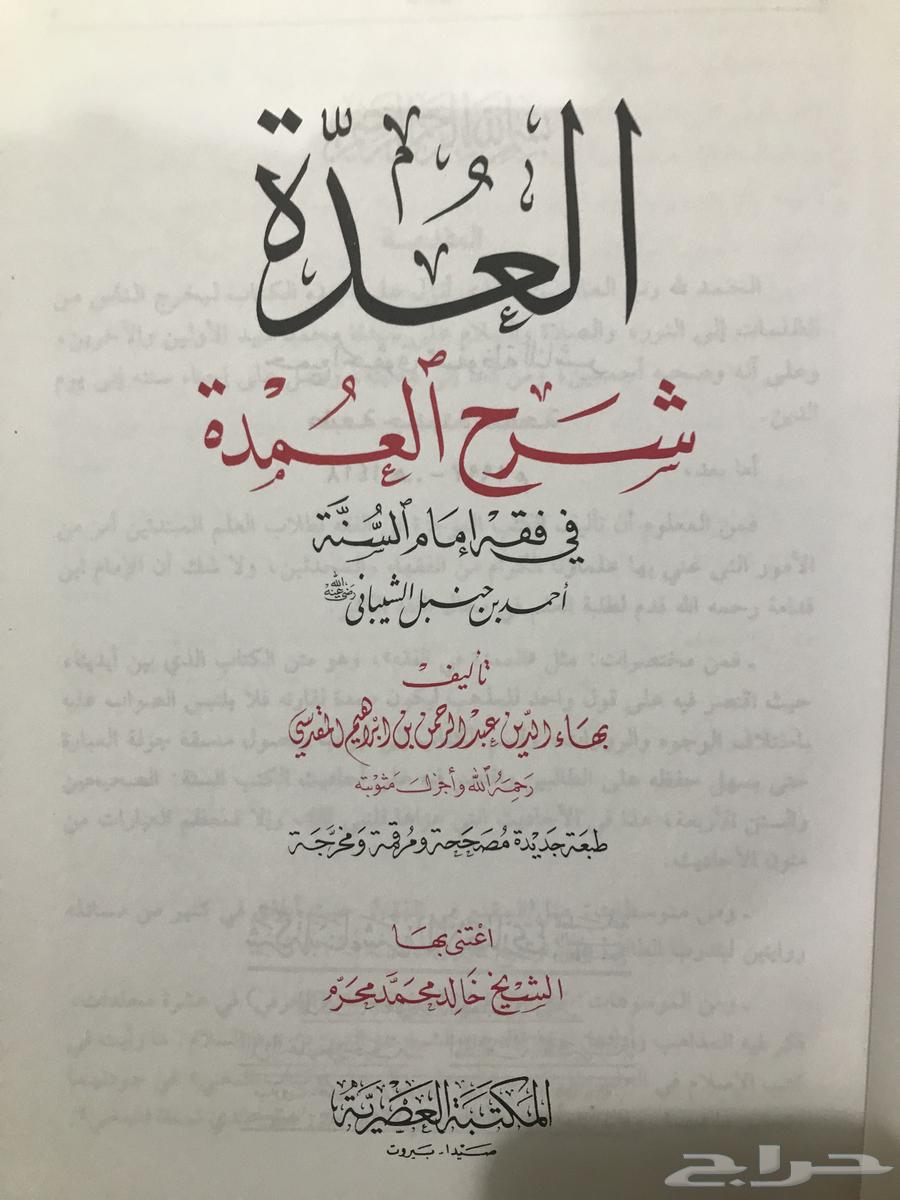 العُدّة
شرح العُمدة
في فقه إمام السُّنَّة
أحمد بن حنبل الشيباني رضي الله عنه
تأليف
بهاء الدين عبد الرحمن بن ابراهيم المقدسي
رحمه الله وأجزل مثوبته
طبعة جديدة مصححة ومرقمة ومخرّجة
اعتنى بها
الشيخ خالد محمد محرم
المكتبة العصرية
صيدا - بيروت
حراج